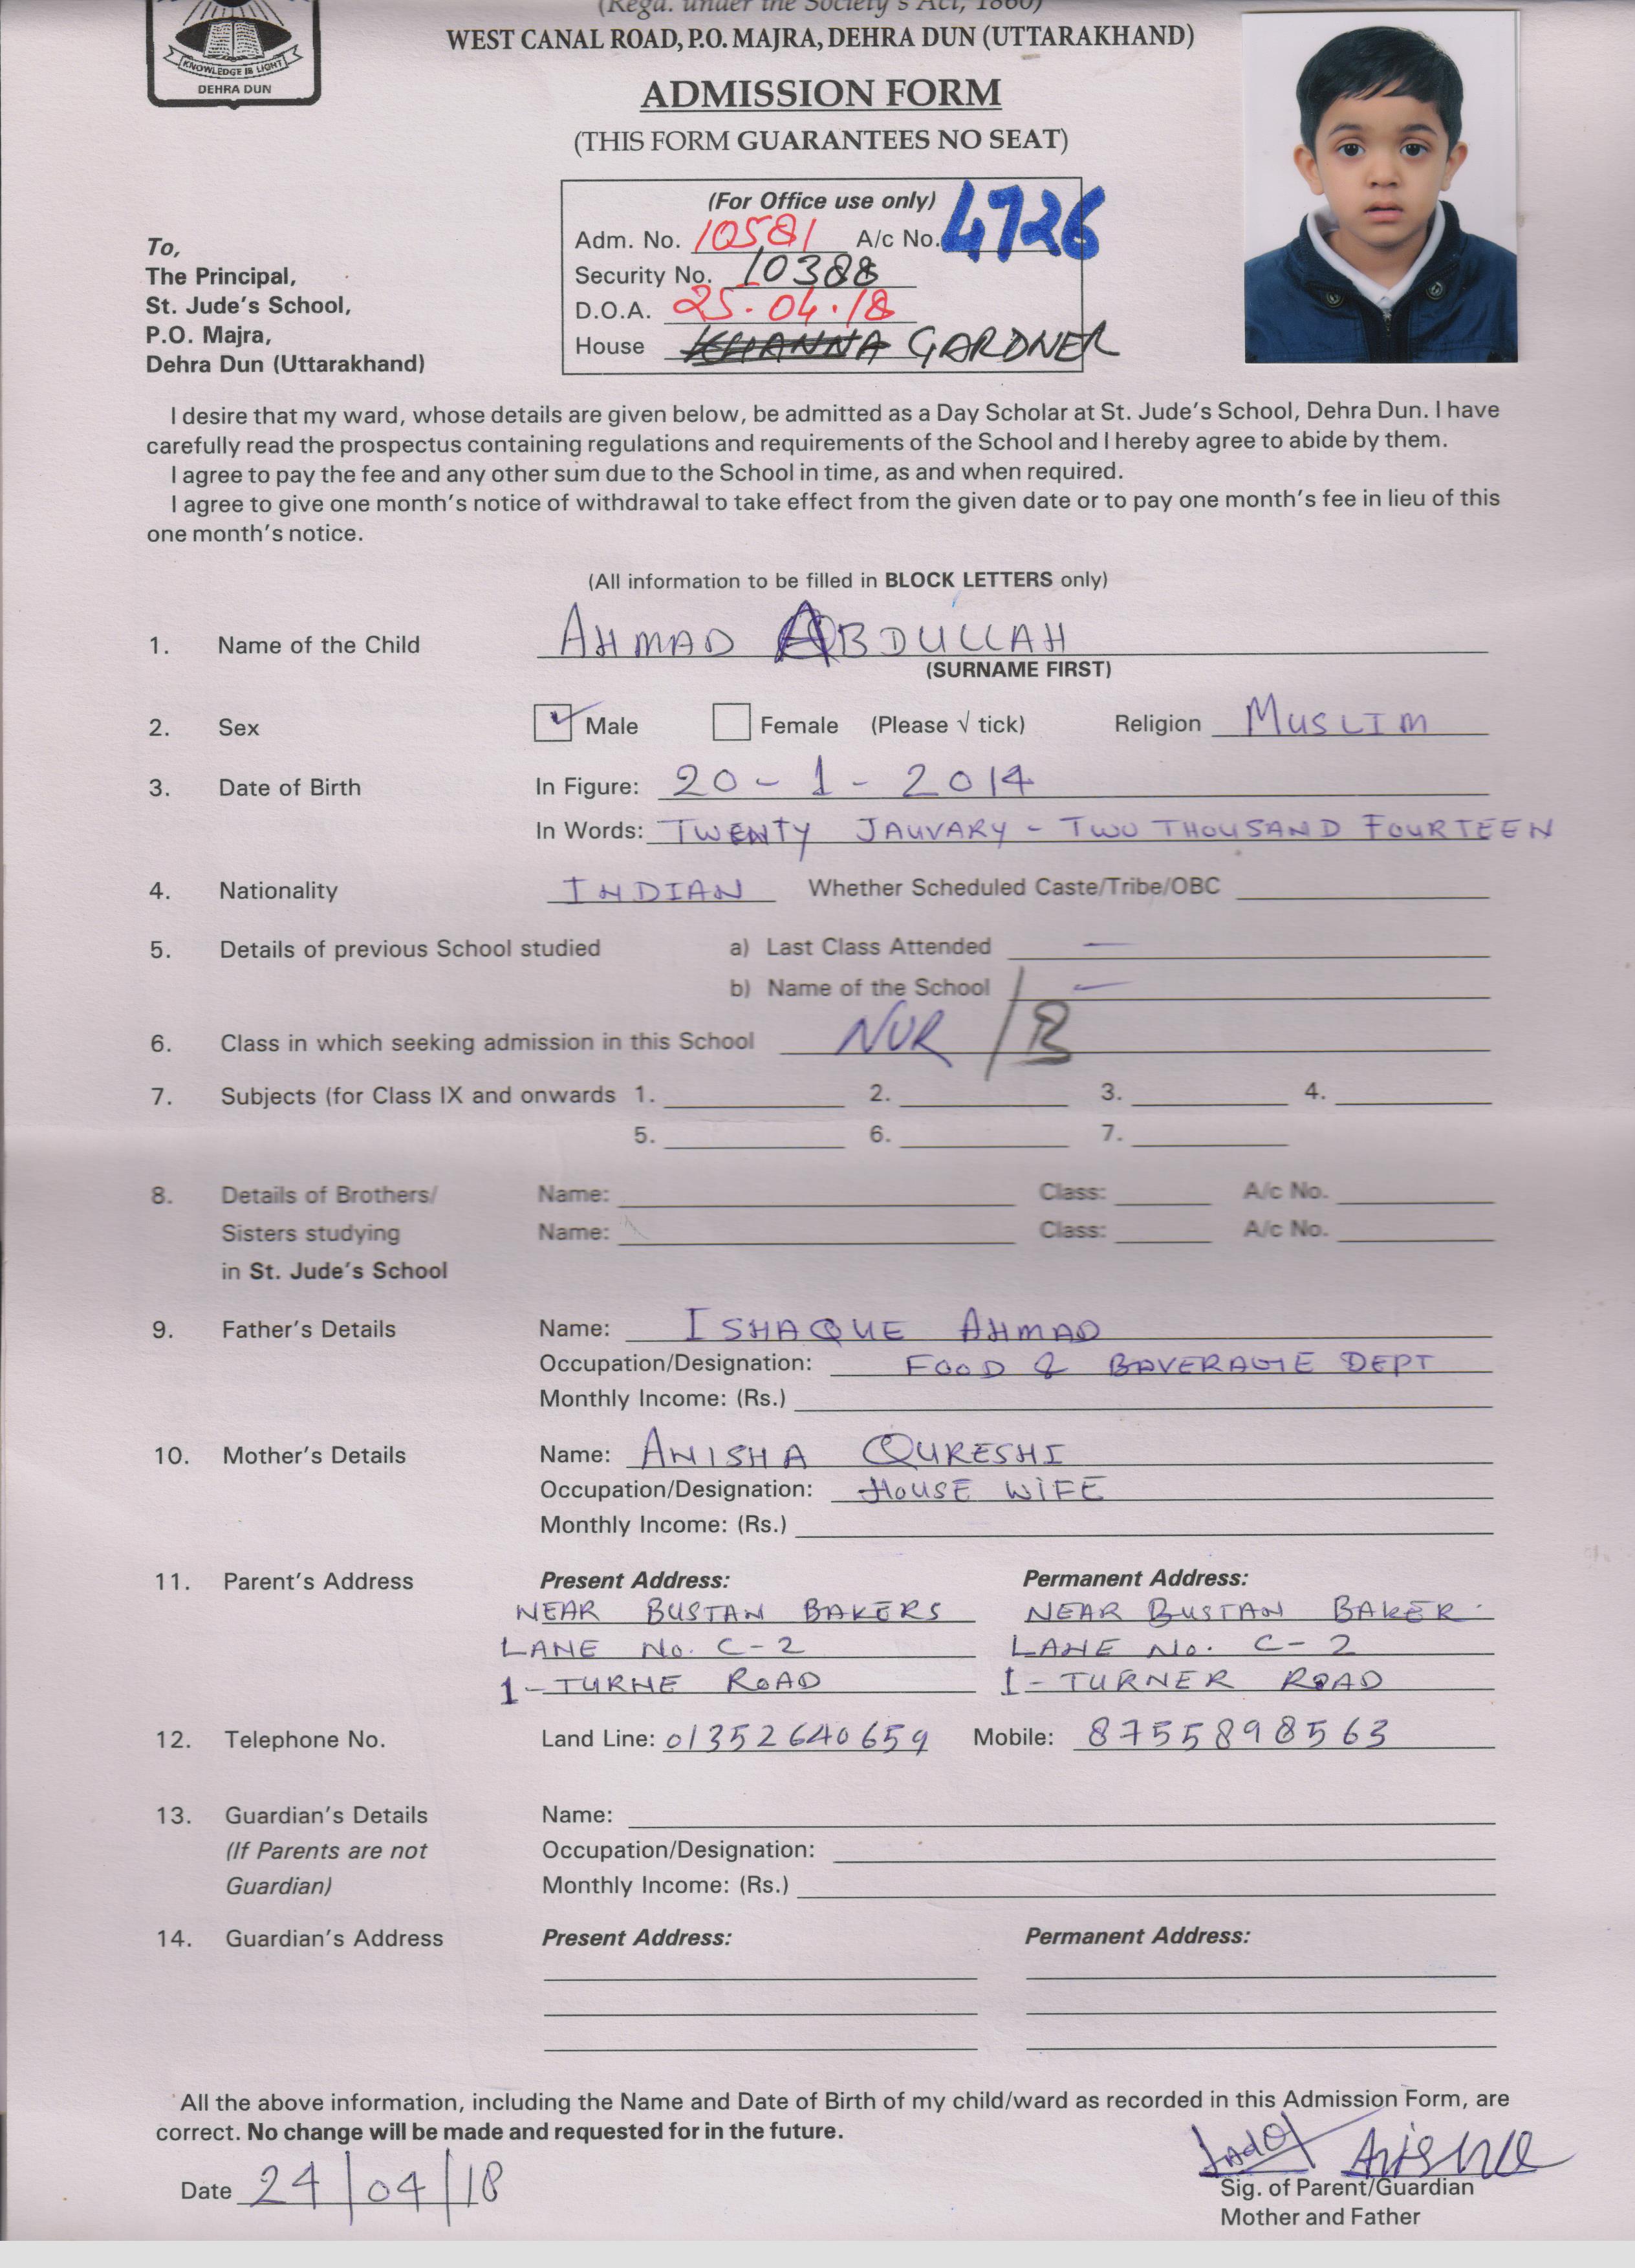 (Regd. under the Society's Act, 1860)
WEST CANAL ROAD, P.O. MAJRA, DEHRA DUN (UTTARAKHAND)
KNOWLEDGE IS LIGHT
DEHRA DUN
ADMISSION FORM
(THIS FORM GUARANTEES NO SEAT)
(For Office use only)
Adm. No. 10581 A/c No. 4726
Security No. 10388
D.O.A. 25.04.18
House KHANNA GARDNER
To,
The Principal,
St. Jude's School,
P.O. Majra,
Dehra Dun (Uttarakhand)
I desire that my ward, whose details are given below, be admitted as a Day Scholar at St. Jude's School, Dehra Dun. I have
carefully read the prospectus containing regulations and requirements of the School and I hereby agree to abide by them.
I agree to pay the fee and any other sum due to the School in time, as and when required.
I agree to give one month's notice of withdrawal to take effect from the given date or to pay one month's fee in lieu of this
one month's notice.
(All information to be filled in BLOCK LETTERS only)
1. Name of the Child AHMAD ABDULLAH
(SURNAME FIRST)
2. Sex Male Female (Please √ tick) Religion MUSLIM
3. Date of Birth In Figure: 20-1-2014
In Words: TWENTY JAUVARY - TWO THOUSAND FOURTEEN
4. Nationality INDIAN Whether Scheduled Caste/Tribe/OBC
5. Details of previous School studied a) Last Class Attended —
b) Name of the School —
6. Class in which seeking admission in this School NUR / B
7. Subjects (for Class IX and onwards 1. 2. 3. 4.
5. 6. 7.
8. Details of Brothers/ Name: Class: A/c No.
Sisters studying Name: Class: A/c No.
in St. Jude's School
9. Father's Details Name: ISHAQUE AHMAD
Occupation/Designation: FOOD & BAVERAGE DEPT
Monthly Income: (Rs.)
10. Mother's Details Name: ANISHA QURESHI
Occupation/Designation: HOUSE WIFE
Monthly Income: (Rs.)
11. Parent's Address Present Address: Permanent Address:
NEAR BUSTAN BAKERS NEAR BUSTAN BAKER
LANE No. C-2 LANE No. C-2
1-TURNE ROAD 1-TURNER ROAD
12. Telephone No. Land Line: 01352640659 Mobile: 8755898563
13. Guardian's Details Name:
(If Parents are not Occupation/Designation:
Guardian) Monthly Income: (Rs.)
14. Guardian's Address Present Address: Permanent Address:
All the above information, including the Name and Date of Birth of my child/ward as recorded in this Admission Form, are
correct. No change will be made and requested for in the future.
Date 24/04/18 Anisha
Sig. of Parent/Guardian
Mother and Father